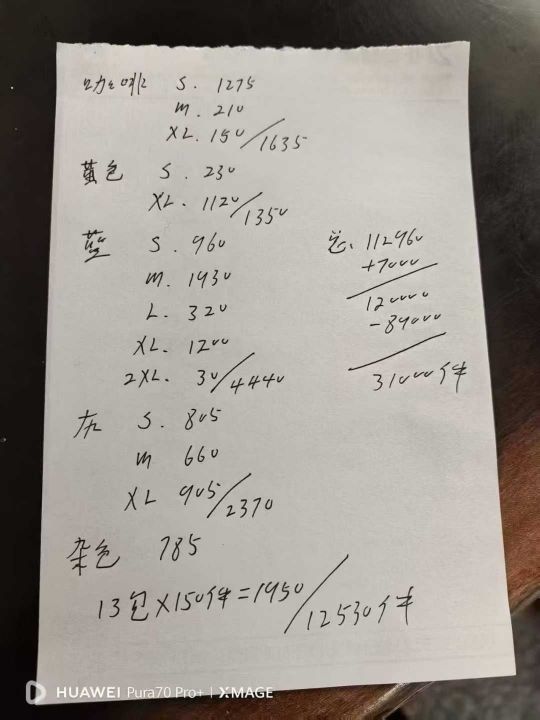 咖啡 S. 1275
M. 210
XL. 150/1635
黄色 S. 230
XL. 1120/1350
蓝 S. 960
M. 1930
L. 320
XL. 1200
2XL. 30/4440
灰 S. 805
M 660
XL 905/2370
杂色 785
13包×150件=1950/12530件
总. 112960
+7000
120000
-89000
31000件
HUAWEI Pura70 Pro+ | XMAGE